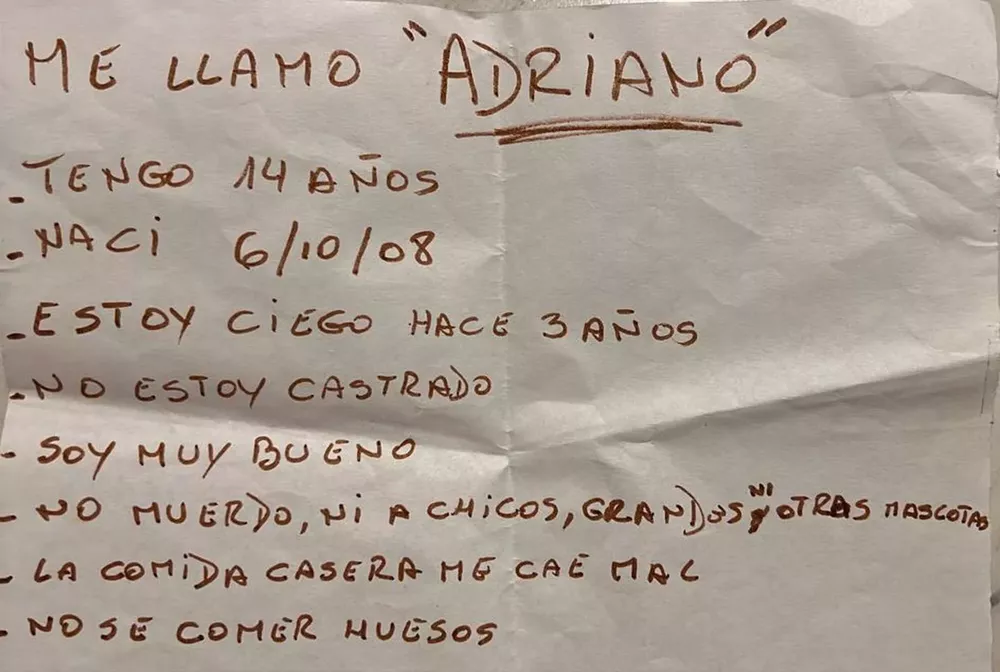 ME LLAMO "ADRIANO"
. TENGO 14 AÑOS
. NACI 6/10/08
. ESTOY CIEGO HACE 3 AÑOS
. NO ESTOY CASTRADO
- SOY MUY BUENO
- NO MUERDO, NI A CHICOS, GRANDES NI OTRAS MASCOTAS
- LA COMIDA CASERA ME CAE MAL
- NO SE COMER HUESOS